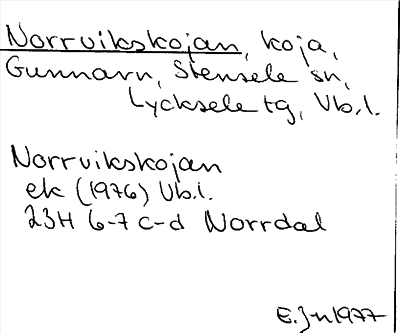 Norrvikskojan, koja,
Gunnarn, Stensele sn,
Lycksele tg, Vb.l.
Norrvikskojan
ek (1976) Vb.l.
23H 6-7 c-d Norrdal
E.J-n 1977